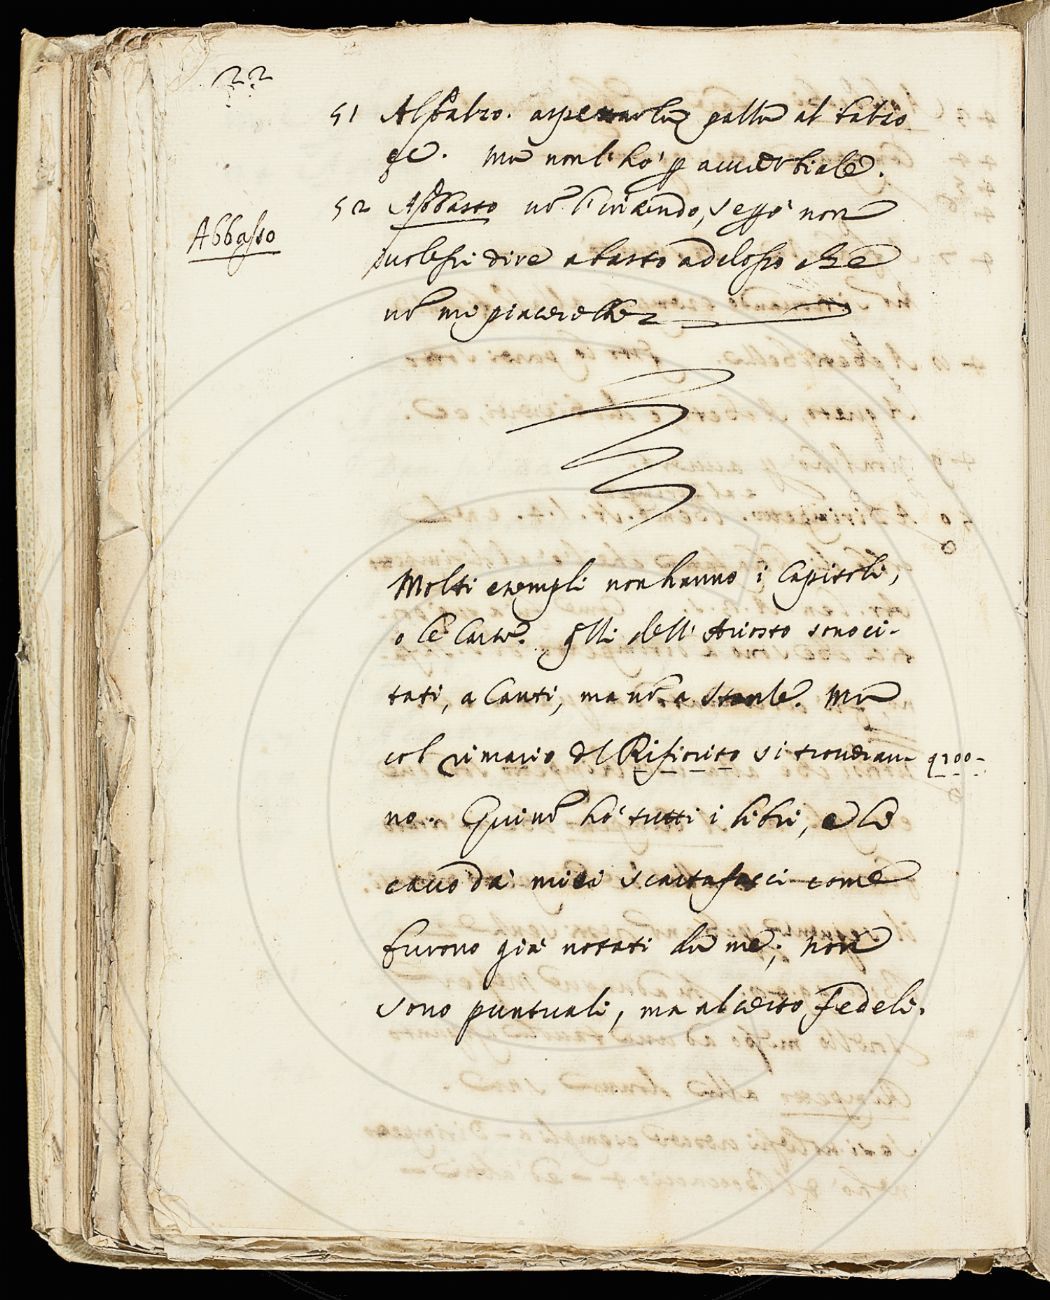 22
51 Al balzo. aspettar la palla al balzo
&c. Ma non l'ho p avverbiale.
Abbasso
52 Abbasso nō l'intendo, se però non
volessi dire a basso adesso che
nō me piacerebbe
Molti exempli non hanno i Capitoli,
o le Carte. Qlli dell'Ariosto sono ci-
tati, a Canti, ma nō a Stanze. Ma
col rimario del Rifiorito si troveran-
no. Qui nō hò tutti i libri, e li
cavo da miei scartafacci come
furono già notati da me; non
sono puntuali, ma al certo fedeli.